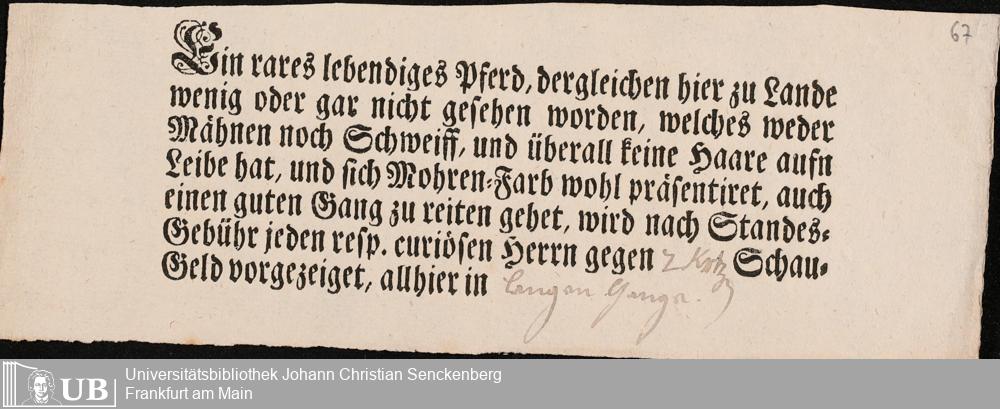 67
Ein rares lebendiges Pferd, dergleichen hier zu Lande
wenig oder gar nicht gesehen worden, welches weder
Mähnen noch Schweiff, und überall keine Haare aufn
Leibe hat, und sich Mohren-Farb wohl präsentiret, auch
einen guten Gang zu reiten gehet, wird nach Standes-
Gebühr jeden resp. curiösen Herrn gegen 2 Schau-
Geld vorgezeiget, allhier in
UB
Universitätsbibliothek Johann Christian Senckenberg
Frankfurt am Main